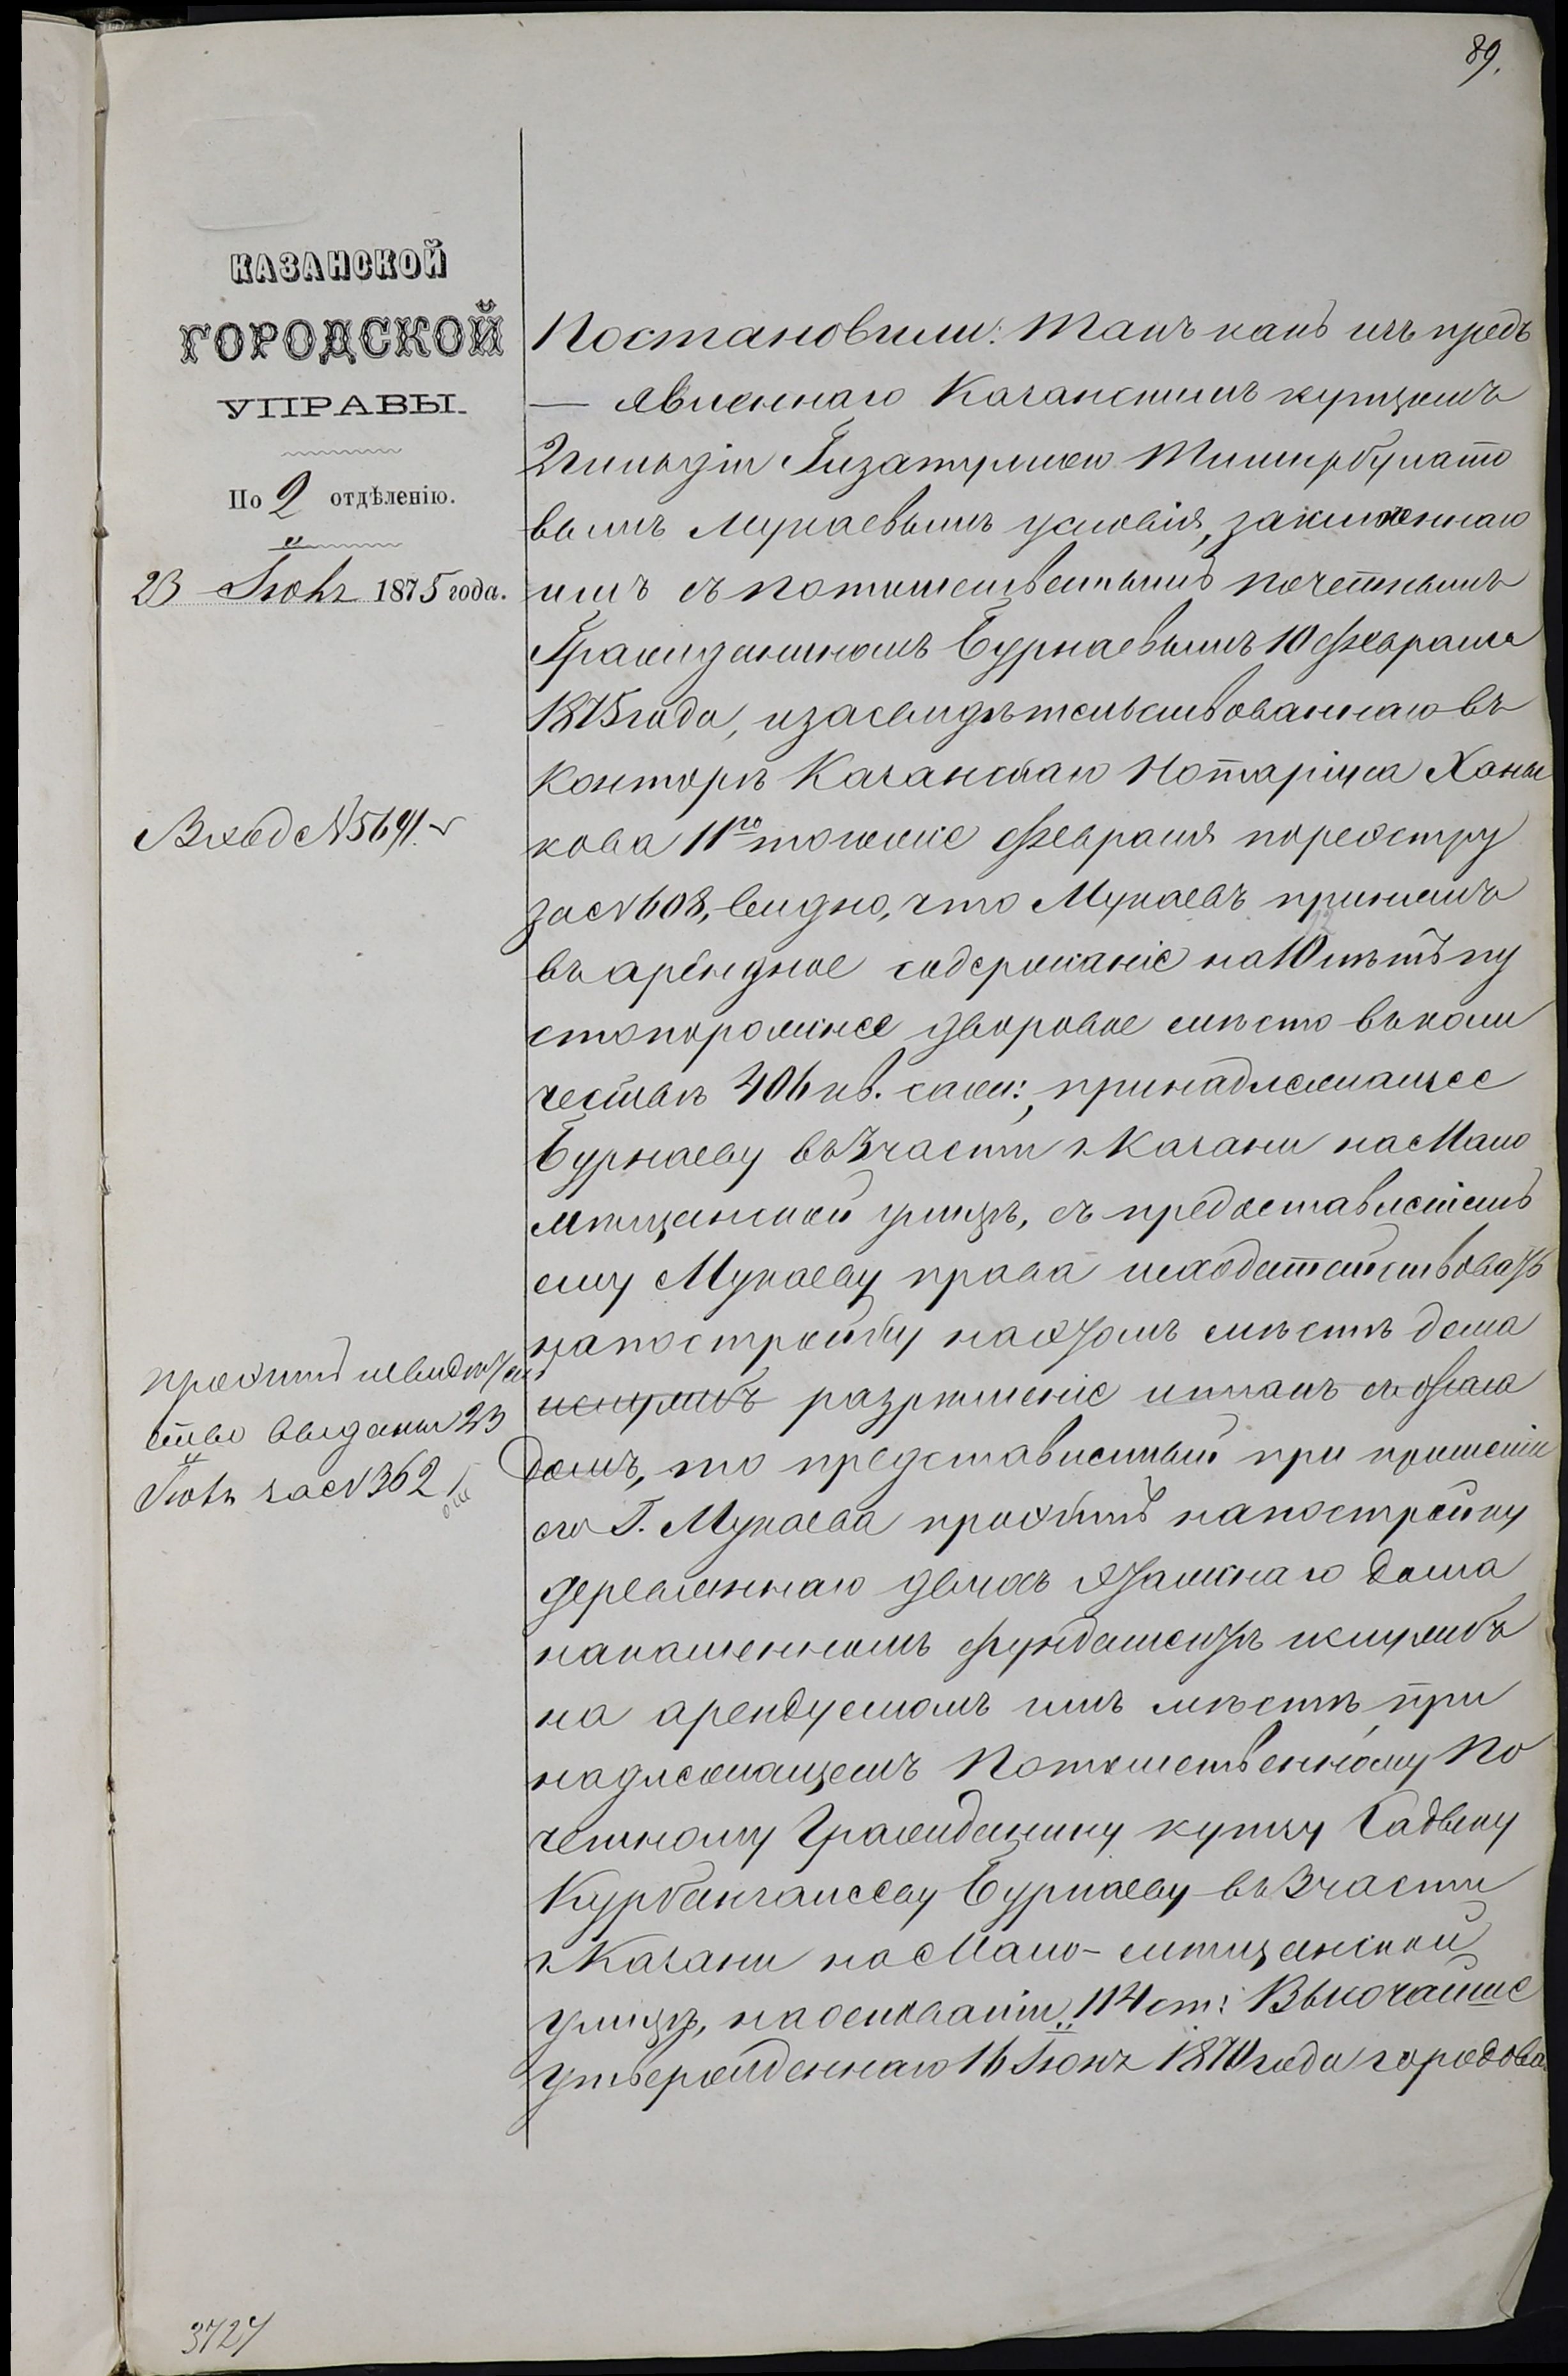 89.
КАЗАНСКОЙ
ГОРОДСКОЙ
УПРАВЫ.
По 2 отдѣленію.
23 Іюня 1875 года.
Вход №5641.
проэктъ и свидѣтель
ство выданы 23
Іюня за №362
Постановили: Такъ какъ изъ предъ
— явленнаго Казанскимъ купцомъ
2 гильдіи Гизатуллою Тимирбулато
вымъ Мукаевымъ условія, заключеннаго
имъ съ потомственнымъ почетнымъ
Гражданиномъ Бурнаевымъ 10 Февраля
1875 года, и засвидѣтельствованнаго въ
конторѣ Казанскаго Нотаріуса Ханы
кова 11го того же Февраля по реэстру
за №608, видно, что Мукаевъ принялъ
12
въ арендное содержаніе на 10 лѣтъ пу
стопорожнее дворовое мѣсто въ коли
чествѣ 406 кв. саж:, принадлежащее
Бурнаеву въ 3 части г. Казани на Мало
мѣщанской улицѣ, съ предоставленіемъ
ему Мукаеву права исходатайствовать
на постройку на этомъ мѣстѣ дома
и службъ разрѣшеніе и планъ
домъ, то представленный при прошеніи
его Г. Мукаева проэктъ на постройку
деревяннаго двухъ этажнаго дома
на каменномъ фундаментѣ и службъ
на арендуемомъ имъ мѣстѣ, при
надлежащемъ Потомственному По
четному Гражданину купцу Садыку
Курбангалееву Бурнаеву въ 3 части
г. Казани на Мало-мѣщанской
улицѣ, на основаніи 114 ст: Высочайше
утвержденнаго 16 Іюня 1870 года городова
3727